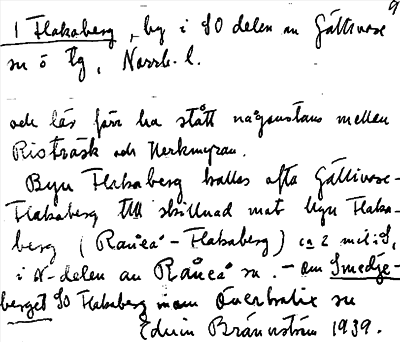 9
1 Flakaberg, by i SO delen av Gällivare
sn ö Lg, Norrb. l.
och lär förr ha stått någonstans mellan
Risträsk och Herkmyran.
Byn Flakaberg kallas ofta Gällivare-
Flakaberg till skillnad mot byn Flaka-
berg (Råneå-Flakaberg) ca 2 mil i S,
i N-delen av Råneå sn. - Om Smedje-
berget SO Flakaberg inom Överkalix sn
Edvin Brännström 1939.